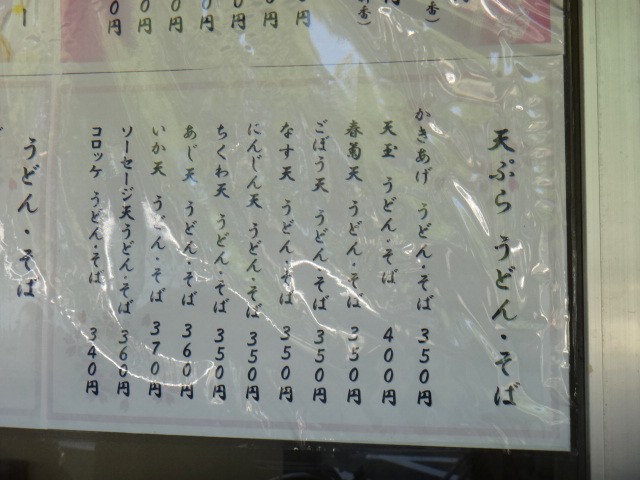 天ぷら うどん・そば
かきあげ うどん・そば 350円
天玉 うどん・そば 400円
春菊天 うどん・そば 350円
ごぼう天 うどん・そば 350円
なす天 うどん・そば 350円
にんじん天 うどん・そば 350円
ちくわ天 うどん・そば 350円
あじ天 うどん・そば 360円
いか天 うどん・そば 370円
ソーセージ天うどん・そば 360円
コロッケ うどん・そば 340円
うどん・そば